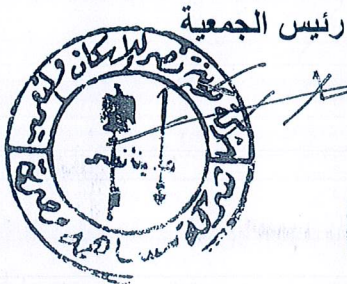 رئيس الجمعية
شركة مدينة نصر للإسكان والتعمير
شركة مساهمة مصرية
مدينة نصر